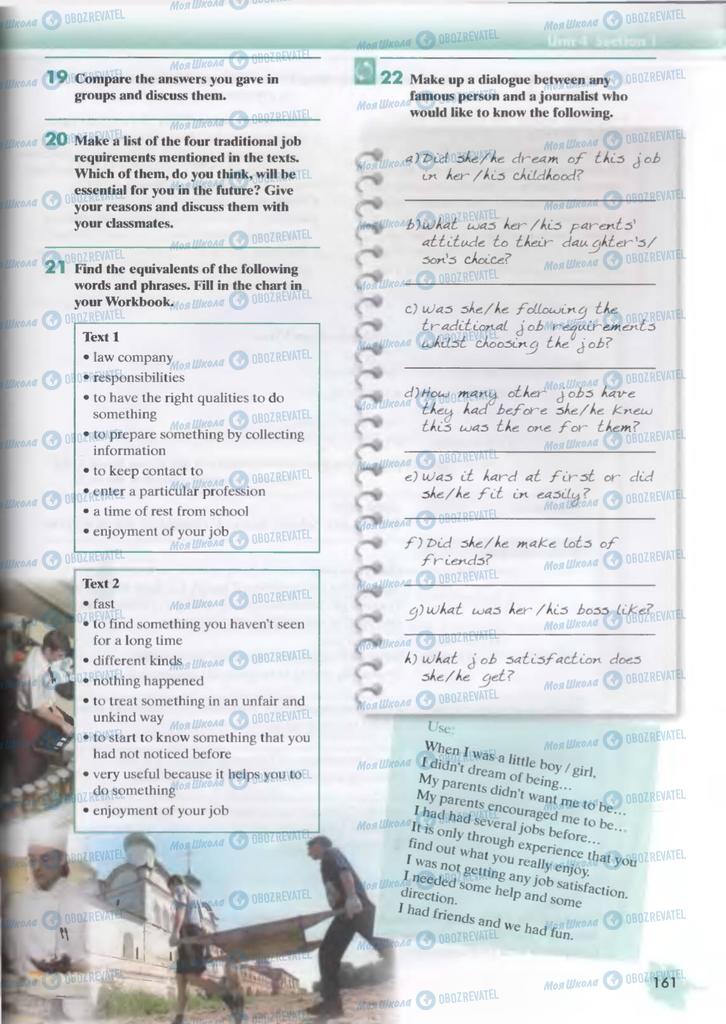 Unit 4 Section 1
19 Compare the answers you gave in
groups and discuss them.
20 Make a list of the four traditional job
requirements mentioned in the texts.
Which of them, do you think, will be
essential for you in the future? Give
your reasons and discuss them with
your classmates.
21 Find the equivalents of the following
words and phrases. Fill in the chart in
your Workbook.
Text 1
• law company
• responsibilities
• to have the right qualities to do
something
• to prepare something by collecting
information
• to keep contact to
• enter a particular profession
• a time of rest from school
• enjoyment of your job
Text 2
• fast
• to find something you haven't seen
for a long time
• different kinds
• nothing happened
• to treat something in an unfair and
unkind way
• to start to know something that you
had not noticed before
• very useful because it helps you to
do something
• enjoyment of your job
22 Make up a dialogue between any
famous person and a journalist who
would like to know the following.
a) Did she/he dream of this job
in her/his childhood?
b) What was her/his parents'
attitude to their daughter's/
son's choice?
c) Was she/he following the
traditional job requirements
whilst choosing the job?
d) How many other jobs have
they had before she/he knew
this was the one for them?
e) Was it hard at first or did
she/he fit in easily?
f) Did she/he make lots of
friends?
g) What was her/his boss like?
h) What job satisfaction does
she/he get?
Use:
When I was a little boy / girl,
I didn't dream of being...
My parents didn't want me to be...
My parents encouraged me to be...
I had had several jobs before...
It is only through experience that you
find out what you really enjoy.
I was not getting any job satisfaction.
I needed some help and some
direction.
I had friends and we had fun.
161
Моя Школа OBOZREVATEL